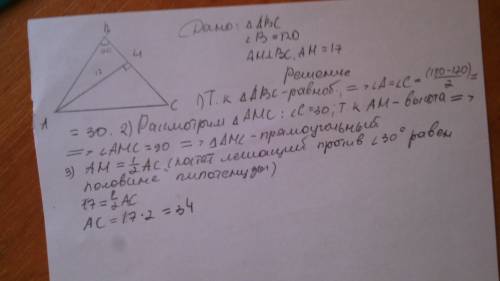 B
120
H
17
A
C
Дано: △ABC
∠B = 120
AH⊥BC, AH = 17
Решение
1) Т. к △ABC - равноб., => ∠A = ∠C = (180-120)/2 =
= 30. 2) Рассмотрим △AHC: ∠C = 30; Т к AH - высота =>
=> ∠AHC = 90 => △AHC - прямоугольный
3) AH = 1/2 AC (катет лежащий против ∠30° равен
половине гипотенузы)
17 = 1/2 AC
AC = 17·2 = 34